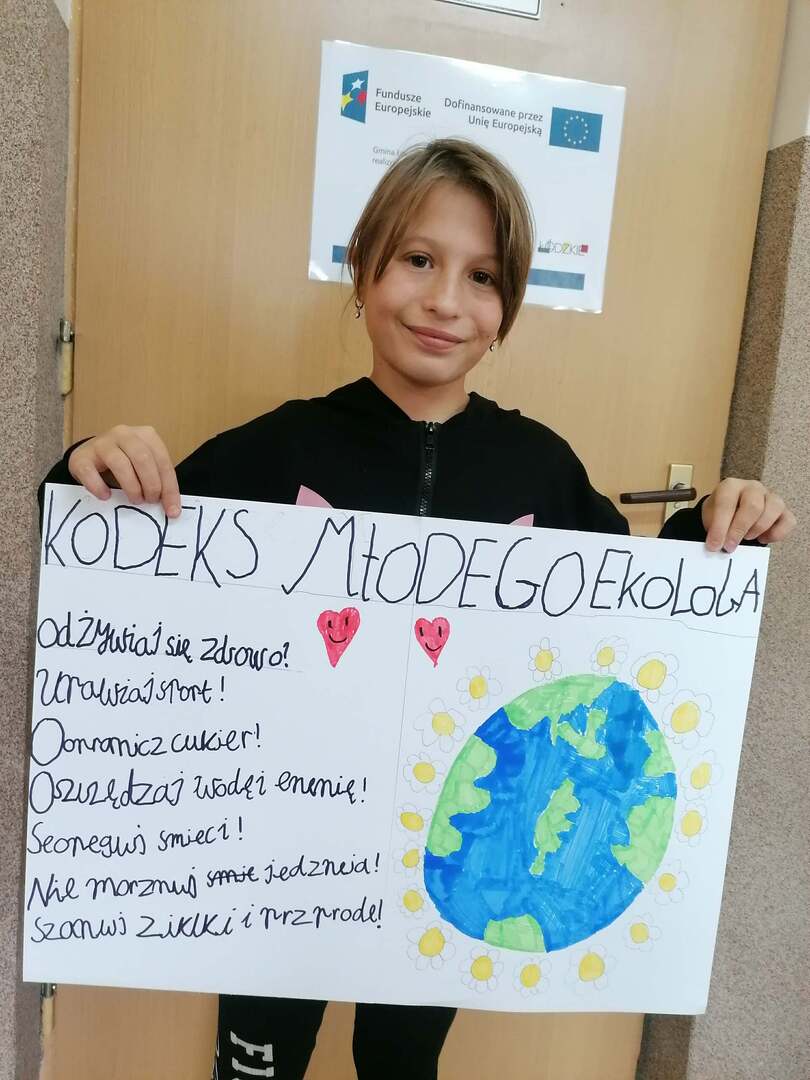 Fundusze
Europejskie
Dofinansowane przez
Unię Europejską
Gmina
realiz
ŁÓDZKIE
KODEKS MŁODEGO EKOLOGA
Odżywiaj się zdrowo!
Urawiaj sport!
Oonranicz cukier!
Oszczędzaj wodę i enenię!
Seoneguj smieci!
Nie marznuj smie jedzneia!
Szanuj ziklki i przprodę!
FI